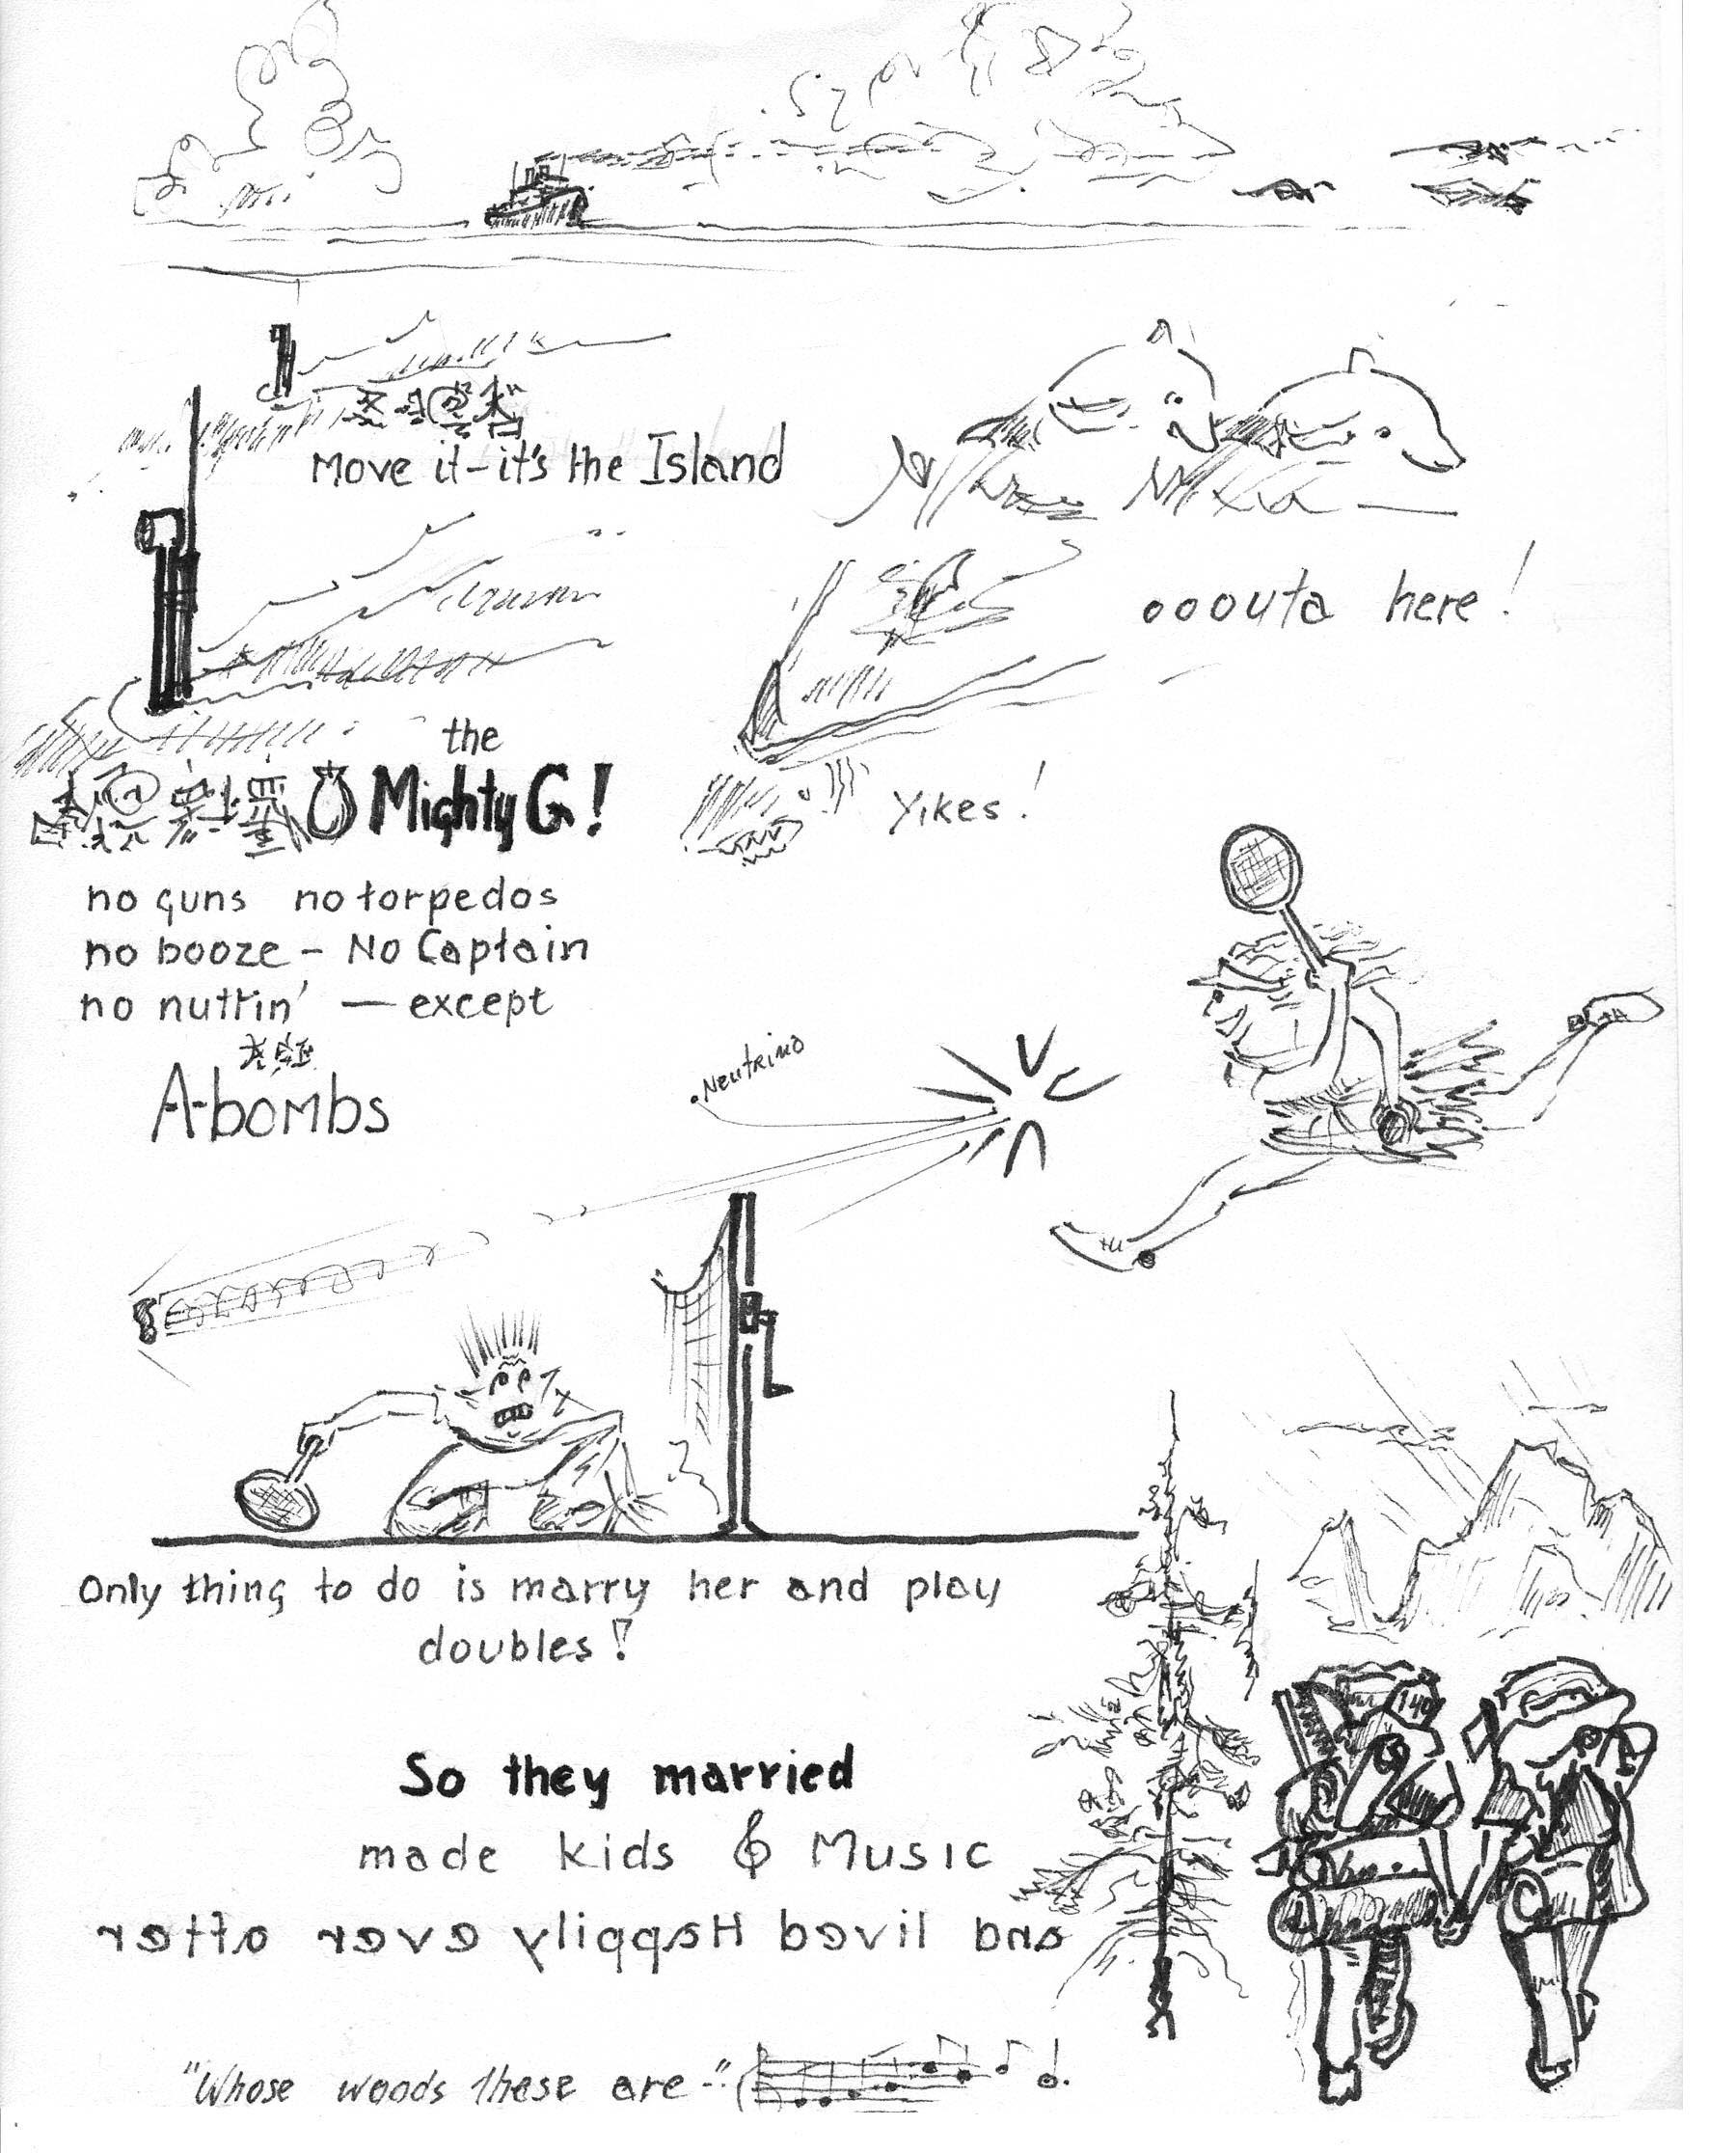 Move it-it's the Island
ooouta here!
the
Mighty G!
Yikes!
no guns no torpedos
no booze - No Captain
no nuttin' — except
A-bombs
Neutrino
Only thing to do is marry her and play
doubles!
140
So they married
made kids & Music
and lived Happily ever after
"Whose woods these are-"